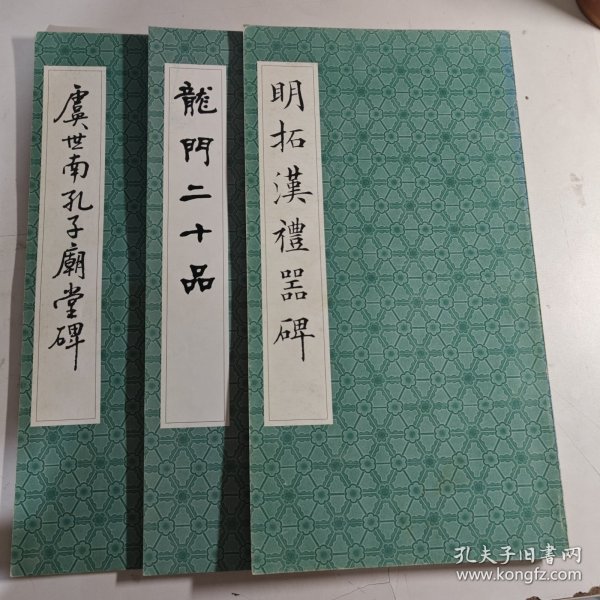 虞世南孔子廟堂碑
龍門二十品
明拓漢禮器碑
孔夫子旧書网
www.kongfz.com